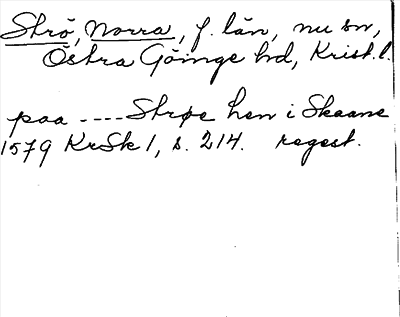 Strö, Norra, f. län, nu sn,
Östra Göinge hd, Krist. l.
paa ---- Strøe hen i Skaane
1579 KrSk 1, s. 214. regest.